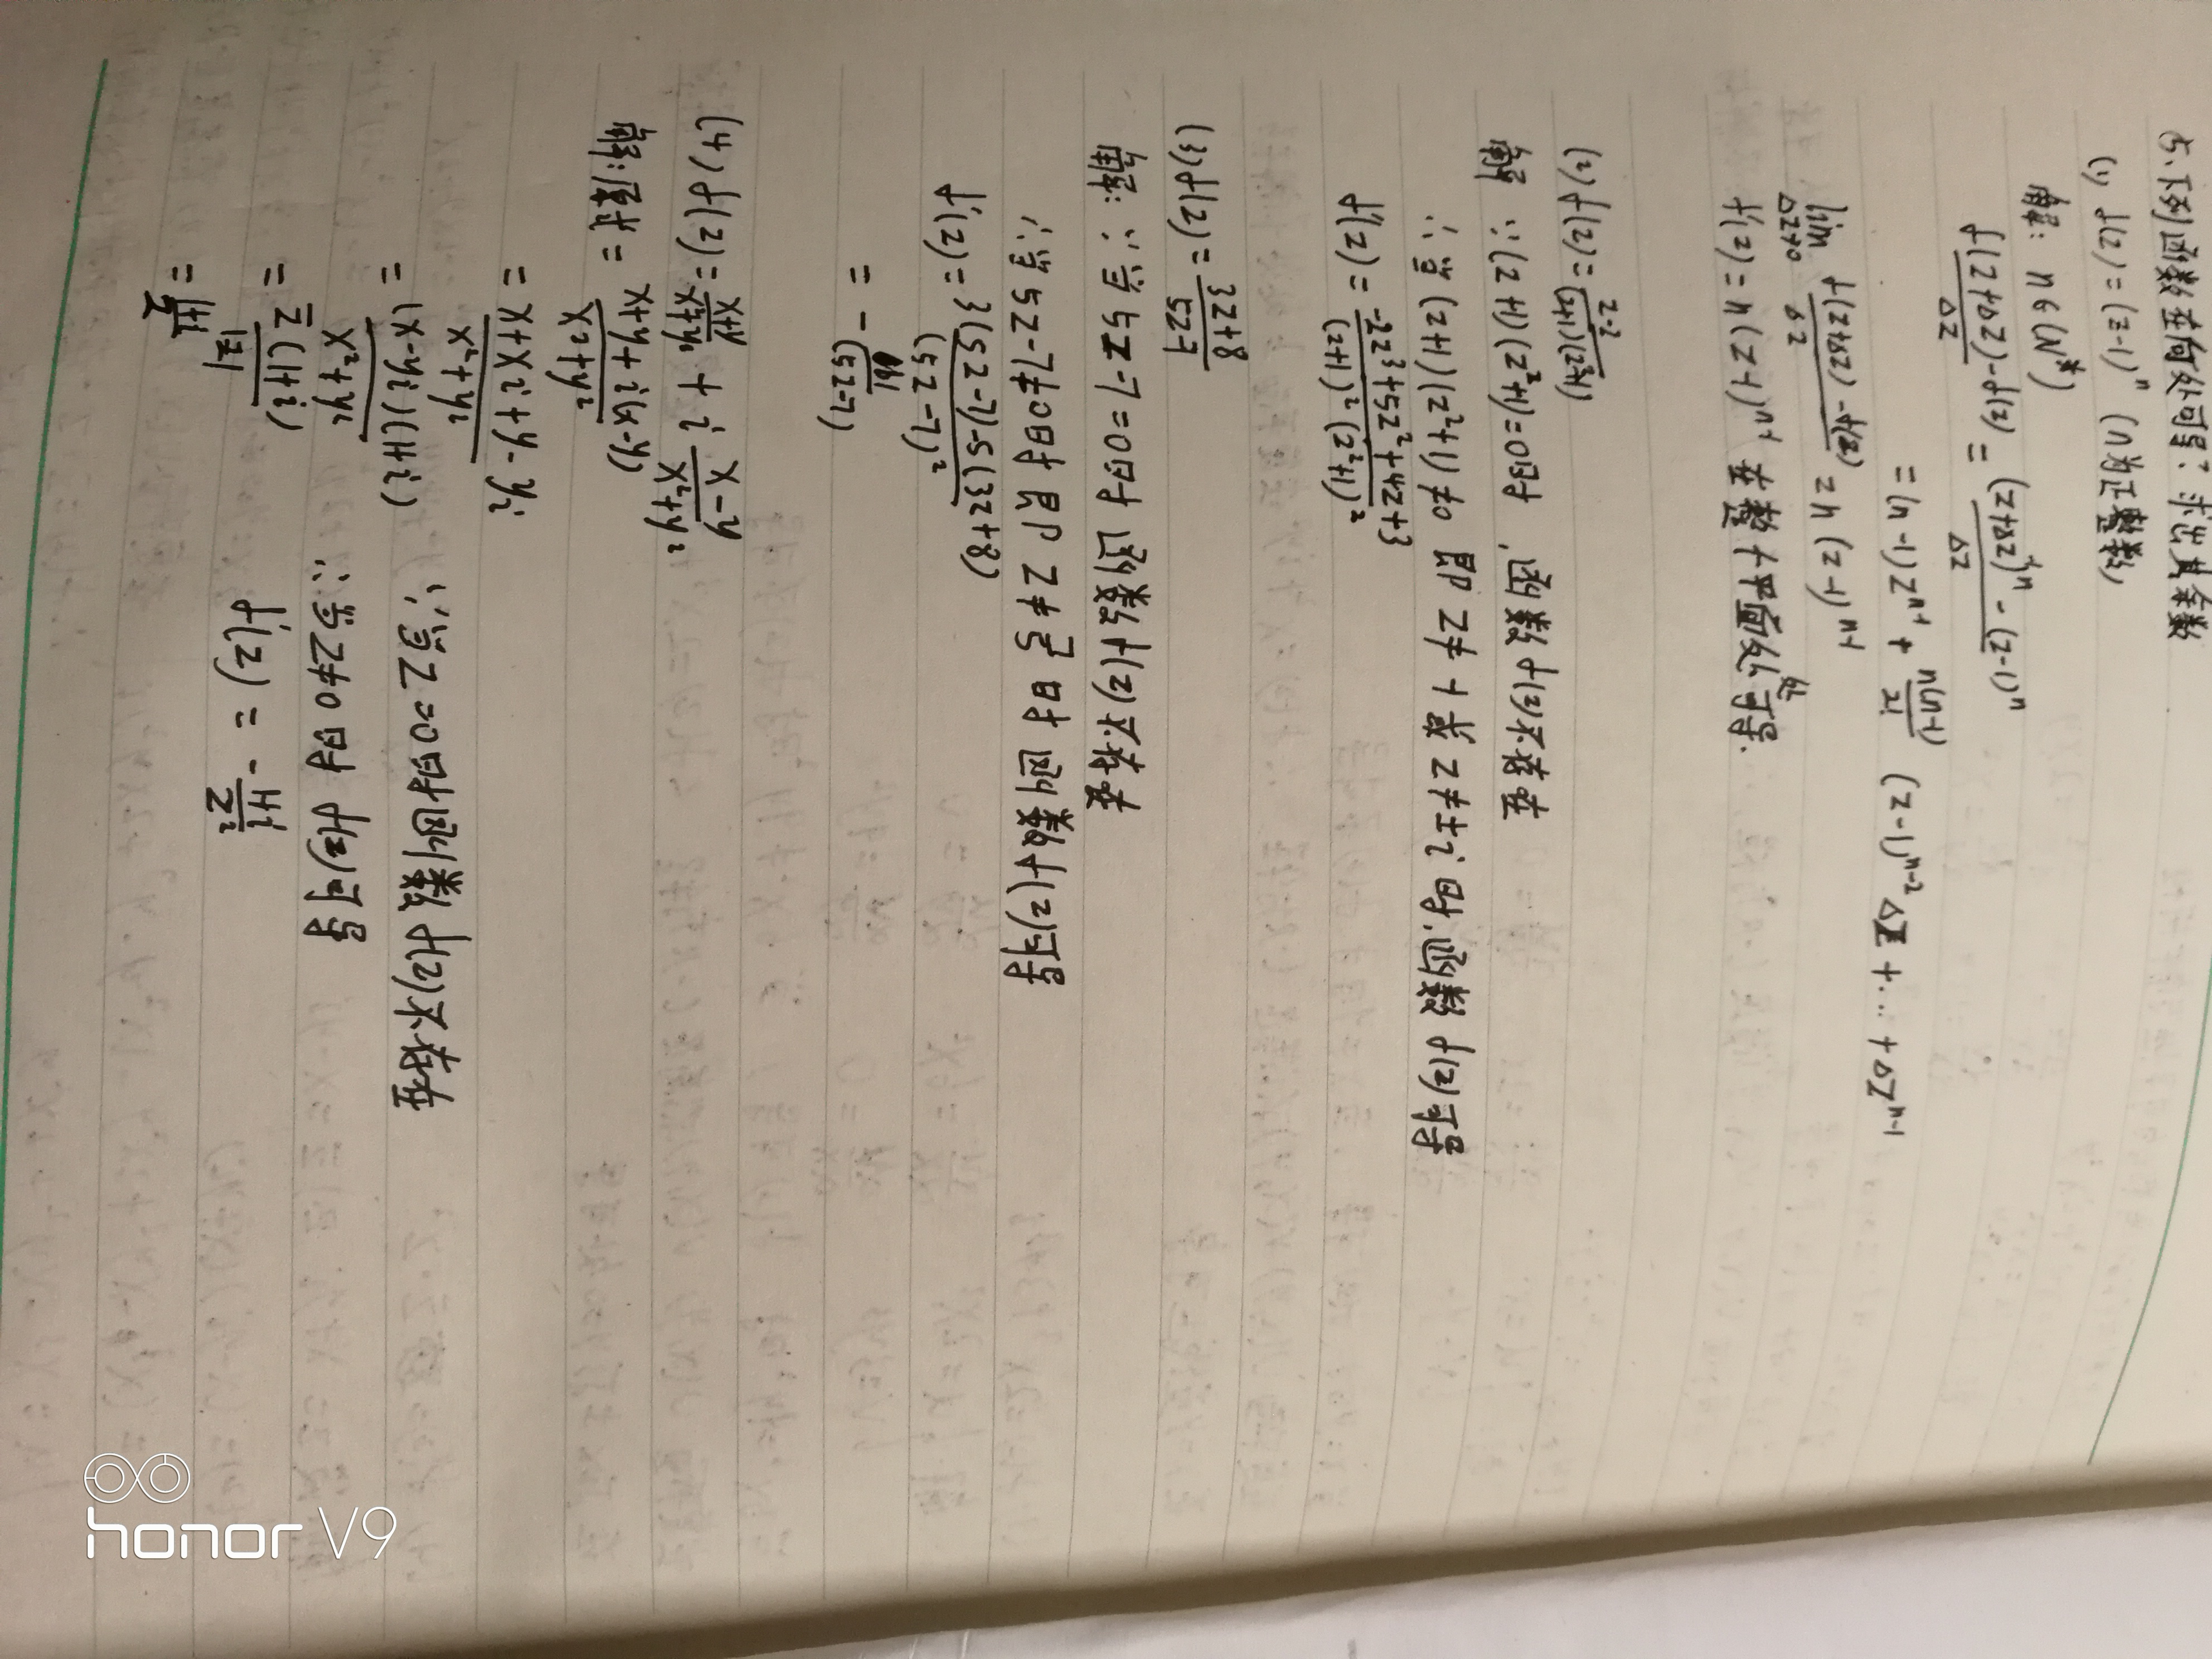 5.下列函数在何处可导?求出其导数
(1) f(z)=(z-1)ⁿ (n为正整数)
解: n∈(N*)
f(z+Δz)-f(z)/Δz = (z+Δz-1)ⁿ-(z-1)ⁿ/Δz
=(n-1)zⁿ⁻¹+n(n-1)/2! (z-1)ⁿ⁻²Δz+...+Δzⁿ⁻¹
lim Δz→0 f(z+Δz)-f(z)/Δz = n(z-1)ⁿ⁻¹
f'(z)=n(z-1)ⁿ⁻¹ 在整个平面处处可导.
(2) f(z)=z-2/(z+1)(z²+1)
解 ∵(z+1)(z²+1)=0时,函数f(z)不存在
∴当(z+1)(z²+1)≠0 即z≠-1或z≠±i时,函数f(z)可导
f'(z)=-2z³+5z²+4z+3/(z+1)²(z²+1)²
(3) f(z)=3z+8/5z-7
解: ∵当5z-7=0时 函数f(z)不存在
∴当5z-7≠0时 即z≠7/5时 函数f(z)可导
f'(z)=3(5z-7)-5(3z+8)/(5z-7)²
=-61/(5z-7)
(4) f(z)=x+y/x²+y² + i x-y/x²+y²
解:原式=x+y+i(x-y)/x²+y²
=x+xi+y-yi/x²+y²
=(x-yi)(1+i)/x²+y²
=z̄(1+i)/|z|
=1+i/z
∵当z=0时函数f(z)不存在
∴当z≠0时f(z)可导
f'(z)=-1+i/z²
honor V9